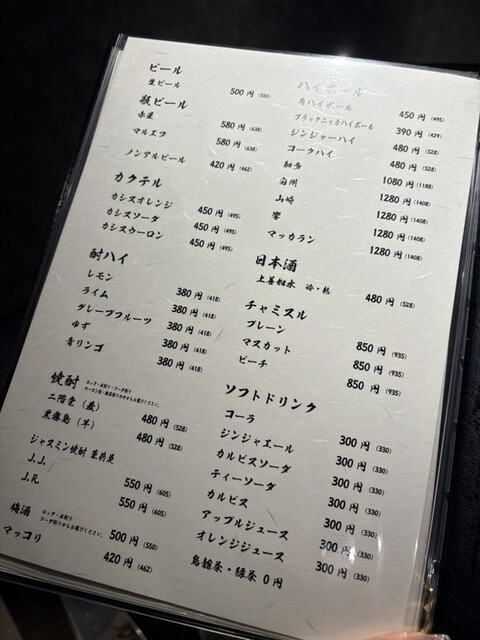 ビール
生ビール 500円(550)
瓶ビール
赤星 580円(638)
マルエフ 580円(638)
ノンアルビール 420円(462)
カクテル
カシスオレンジ 450円(495)
カシスソーダ 450円(495)
カシスウーロン 450円(495)
酎ハイ
レモン 380円(418)
ライム 380円(418)
グレープフルーツ 380円(418)
ゆず 380円(418)
青リンゴ 380円(418)
焼酎 ロック・水割り・ソーダ割り
二階堂(麦) 480円(528)
黒霧島(芋) 480円(528)
ジャスミン焼酎 茉莉花
J.J. 550円(605)
J.R. 550円(605)
梅酒 ロック・水割り
ソーダ割りからお選びください。 500円(550)
マッコリ 420円(462)
ハイボール
角ハイボール 450円(495)
ブラックニッカハイボール 390円(429)
ジンジャーハイ 480円(528)
コークハイ 480円(528)
知多 1080円(1188)
白州 1280円(1408)
山崎 1280円(1408)
響 1280円(1408)
マッカラン 1280円(1408)
日本酒
上善如水 冷・熱 480円(528)
チャミスル
プレーン 850円(935)
マスカット 850円(935)
ピーチ 850円(935)
ソフトドリンク
コーラ 300円(330)
ジンジャエール 300円(330)
カルピスソーダ 300円(330)
ティーソーダ 300円(330)
カルピス 300円(330)
アップルジュース 300円(330)
オレンジジュース 300円(330)
烏龍茶・緑茶 0円